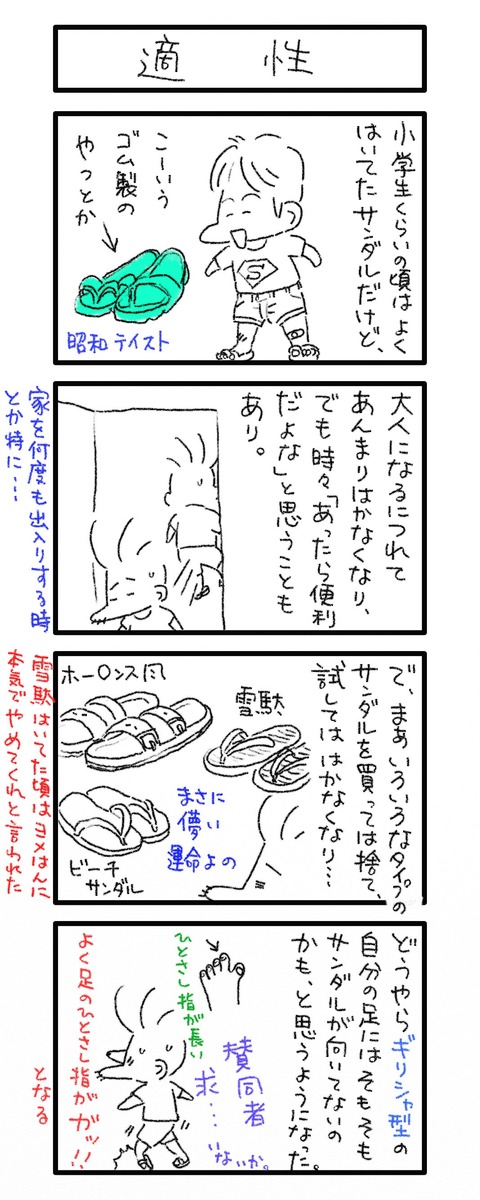 適性
小学生くらいの頃はよく
はいてたサンダルだけど、
S
こーいう
ゴム製の
やつとか
昭和テイスト
大人になるにつれて
あんまりはかなくなり、
でも時々「あったら便利
だよな」と思うことも
あり。
家を何度も出入りする時
とか特に…
で、まあいろいろなタイプの
サンダルを買っては捨て、
試しては はかなくなり…
雪駄
ホーロンス風
まさに
儚い
運命よの
ビーチ
サンダル
雪駄はいてた頃はヨメはんに
本気でやめてくれと言われた
どうやらギリシャ型の
自分の足にはそもそも
サンダルが向いてないの
かも、と思うようになった。
ひとさし指が長い
賛同者
求…
いないか。
よく足のひとさし指がガッ!!
となる